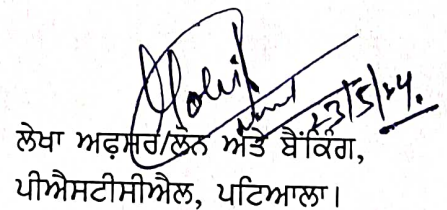 23/5/24.
ਲੇਖਾ ਅਫ਼ਸਰ/ਲੋਨ ਅਤੇ ਬੈਂਕਿੰਗ,
ਪੀਐਸਟੀਸੀਐਲ, ਪਟਿਆਲਾ।